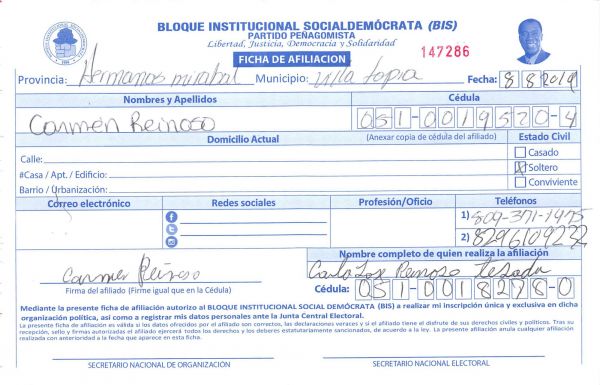 BLOQUE INSTITUCIONAL SOCIALDEMÓCRATA (BIS)
PARTIDO PEÑAGOMISTA
Libertad, Justicia, Democracia y Solidaridad
FICHA DE AFILIACION
147286
Provincia: Hermanas mirabal Municipio: villa tapia Fecha: 8 8 2019
Nombres y Apellidos Cédula
Carmen Reinoso 051-0019520-4
Domicilio Actual (Anexar copia de cédula del afiliado) Estado Civil
Calle: Casado
#Casa / Apt. / Edificio: Soltero
Barrio / Urbanización: Conviviente
Correo electrónico Redes sociales Profesión/Oficio Teléfonos
1) 809-371-1975
2) 8296109232
Nombre completo de quien realiza la afiliación
Carmen Reinoso Carlo Jose Reinoso Tejada
Firma del afiliado (Firme igual que en la Cédula) Cédula: 051-0018278-0
Mediante la presente ficha de afiliación autorizo al BLOQUE INSTITUCIONAL SOCIAL DEMÓCRATA (BIS) a realizar mi inscripción única y exclusiva en dicha
organización política, así como a registrar mis datos personales ante la Junta Central Electoral.
La presente ficha de afiliación es válida si los datos ofrecidos por el afiliado son correctos, las declaraciones veraces y si el afiliado tiene el disfrute de sus derechos civiles y políticos. Tras su
recepción, sello y firmas autorizadas el afiliado ejercerá todos los derechos y los deberes estatutariamente sancionados, de acuerdo a la ley. La presente afiliación anula cualquier afiliación
realizada con anterioridad a la fecha que aparece en esta ficha.
SECRETARIO NACIONAL DE ORGANIZACIÓN SECRETARIO NACIONAL ELECTORAL